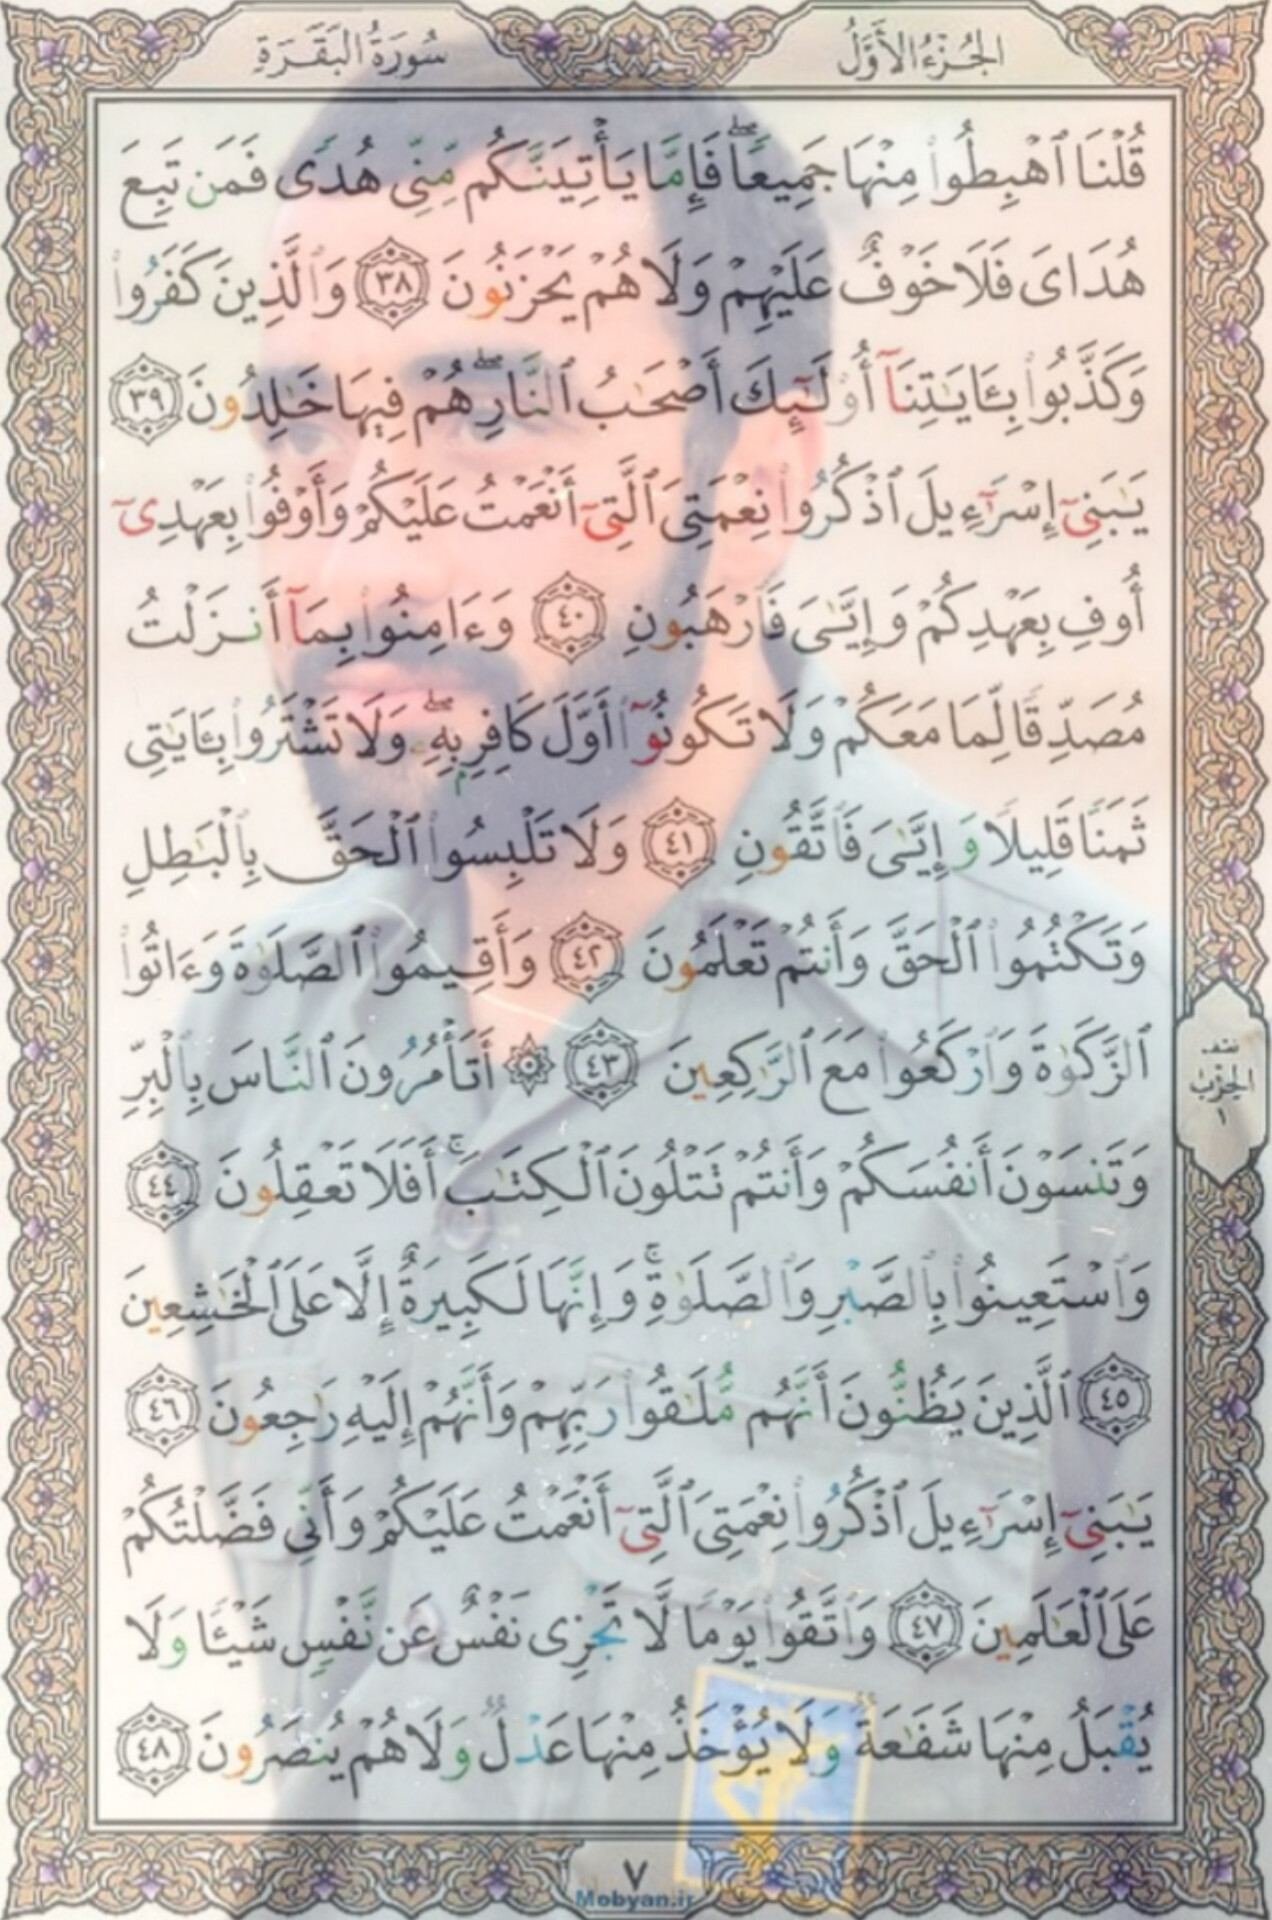 الجُزْءُ الأَوَّلُ
سُورَةُ البَقَرَةِ
قُلْنَا ٱهْبِطُوا۟ مِنْهَا جَمِيعًا ۖ فَإِمَّا يَأْتِيَنَّكُم مِّنِّى هُدًى فَمَن تَبِعَ
هُدَاىَ فَلَا خَوْفٌ عَلَيْهِمْ وَلَا هُمْ يَحْزَنُونَ ٣٨ وَٱلَّذِينَ كَفَرُوا۟
وَكَذَّبُوا۟ بِـَٔايَـٰتِنَآ أُو۟لَـٰٓئِكَ أَصْحَـٰبُ ٱلنَّارِ ۖ هُمْ فِيهَا خَـٰلِدُونَ ٣٩
يَـٰبَنِىٓ إِسْرَٰٓءِيلَ ٱذْكُرُوا۟ نِعْمَتِىَ ٱلَّتِىٓ أَنْعَمْتُ عَلَيْكُمْ وَأَوْفُوا۟ بِعَهْدِىٓ
أُوفِ بِعَهْدِكُمْ وَإِيَّـٰىَ فَٱرْهَبُونِ ٤٠ وَءَامِنُوا۟ بِمَآ أَنزَلْتُ
مُصَدِّقًا لِّمَا مَعَكُمْ وَلَا تَكُونُوٓا۟ أَوَّلَ كَافِرٍۭ بِهِۦ ۖ وَلَا تَشْتَرُوا۟ بِـَٔايَـٰتِى
ثَمَنًا قَلِيلًا وَإِيَّـٰىَ فَٱتَّقُونِ ٤١ وَلَا تَلْبِسُوا۟ ٱلْحَقَّ بِٱلْبَـٰطِلِ
وَتَكْتُمُوا۟ ٱلْحَقَّ وَأَنتُمْ تَعْلَمُونَ ٤٢ وَأَقِيمُوا۟ ٱلصَّلَوٰةَ وَءَاتُوا۟
ٱلزَّكَوٰةَ وَٱرْكَعُوا۟ مَعَ ٱلرَّٰكِعِينَ ٤٣ ۞ أَتَأْمُرُونَ ٱلنَّاسَ بِٱلْبِرِّ
وَتَنسَوْنَ أَنفُسَكُمْ وَأَنتُمْ تَتْلُونَ ٱلْكِتَـٰبَ ۚ أَفَلَا تَعْقِلُونَ ٤٤
وَٱسْتَعِينُوا۟ بِٱلصَّبْرِ وَٱلصَّلَوٰةِ ۚ وَإِنَّهَا لَكَبِيرَةٌ إِلَّا عَلَى ٱلْخَـٰشِعِينَ
٤٥ ٱلَّذِينَ يَظُنُّونَ أَنَّهُم مُّلَـٰقُوا۟ رَبِّهِمْ وَأَنَّهُمْ إِلَيْهِ رَٰجِعُونَ ٤٦
يَـٰبَنِىٓ إِسْرَٰٓءِيلَ ٱذْكُرُوا۟ نِعْمَتِىَ ٱلَّتِىٓ أَنْعَمْتُ عَلَيْكُمْ وَأَنِّى فَضَّلْتُكُمْ
عَلَى ٱلْعَـٰلَمِينَ ٤٧ وَٱتَّقُوا۟ يَوْمًا لَّا تَجْزِى نَفْسٌ عَن نَّفْسٍ شَيْـًٔا وَلَا
يُقْبَلُ مِنْهَا شَفَـٰعَةٌ وَلَا يُؤْخَذُ مِنْهَا عَدْلٌ وَلَا هُمْ يُنصَرُونَ ٤٨
نصف
الحزب
١
٧
Mobyan.ir